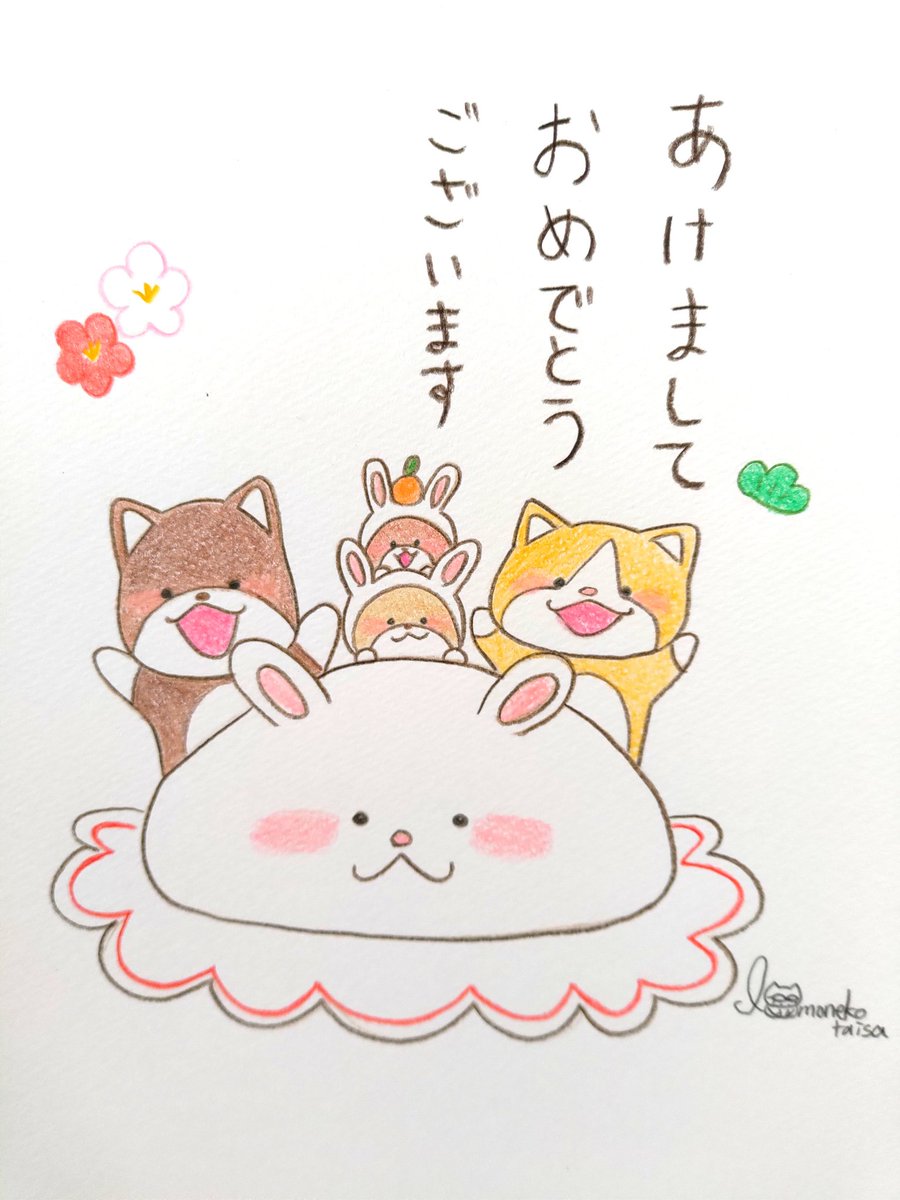 あけまして
おめでとう
ございます
moneko
taisa